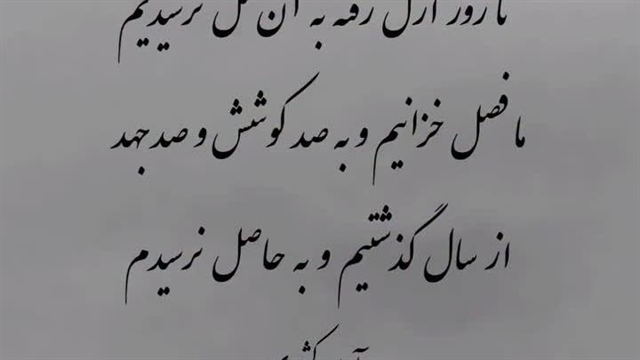 ما روز ازل رفته به آن دل نرسیدیم
ما فصل خزانیم و به صد کوشش و صد جهد
از سال گذشتیم و به حاصل نرسیدم